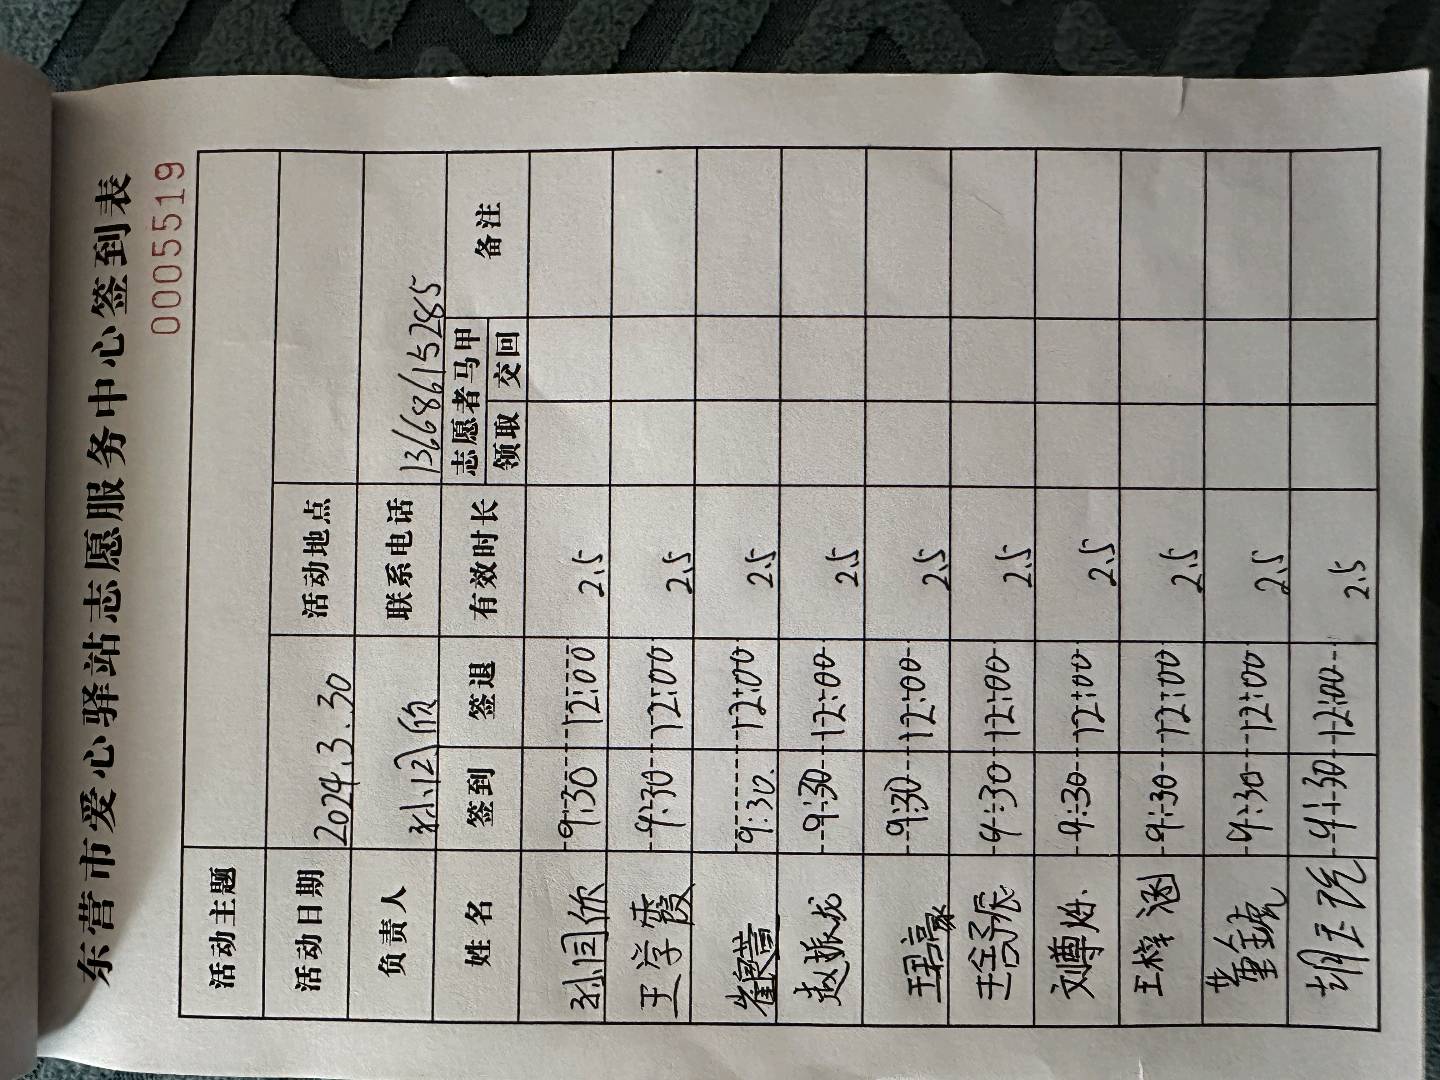 东营市爱心驿站志愿服务中心签到表
0005519
活动主题
活动日期 2024.3.30 活动地点
负责人 联系电话 13668615285
姓名 签到 签退 有效时长 志愿者马甲 备注
领取 交回
孙闫欣 9:30 12:00 2.5
王学霞 9:30 12:00 2.5
9:30. 12:00 2.5
赵振龙 9:30 12:00 2.5
9:30 12:00 2.5
9:30 12:00 2.5
9:30 12:00 2.5
王梓涵 9:30 12:00 2.5
9:30 12:00 2.5
9:30 12:00 2.5